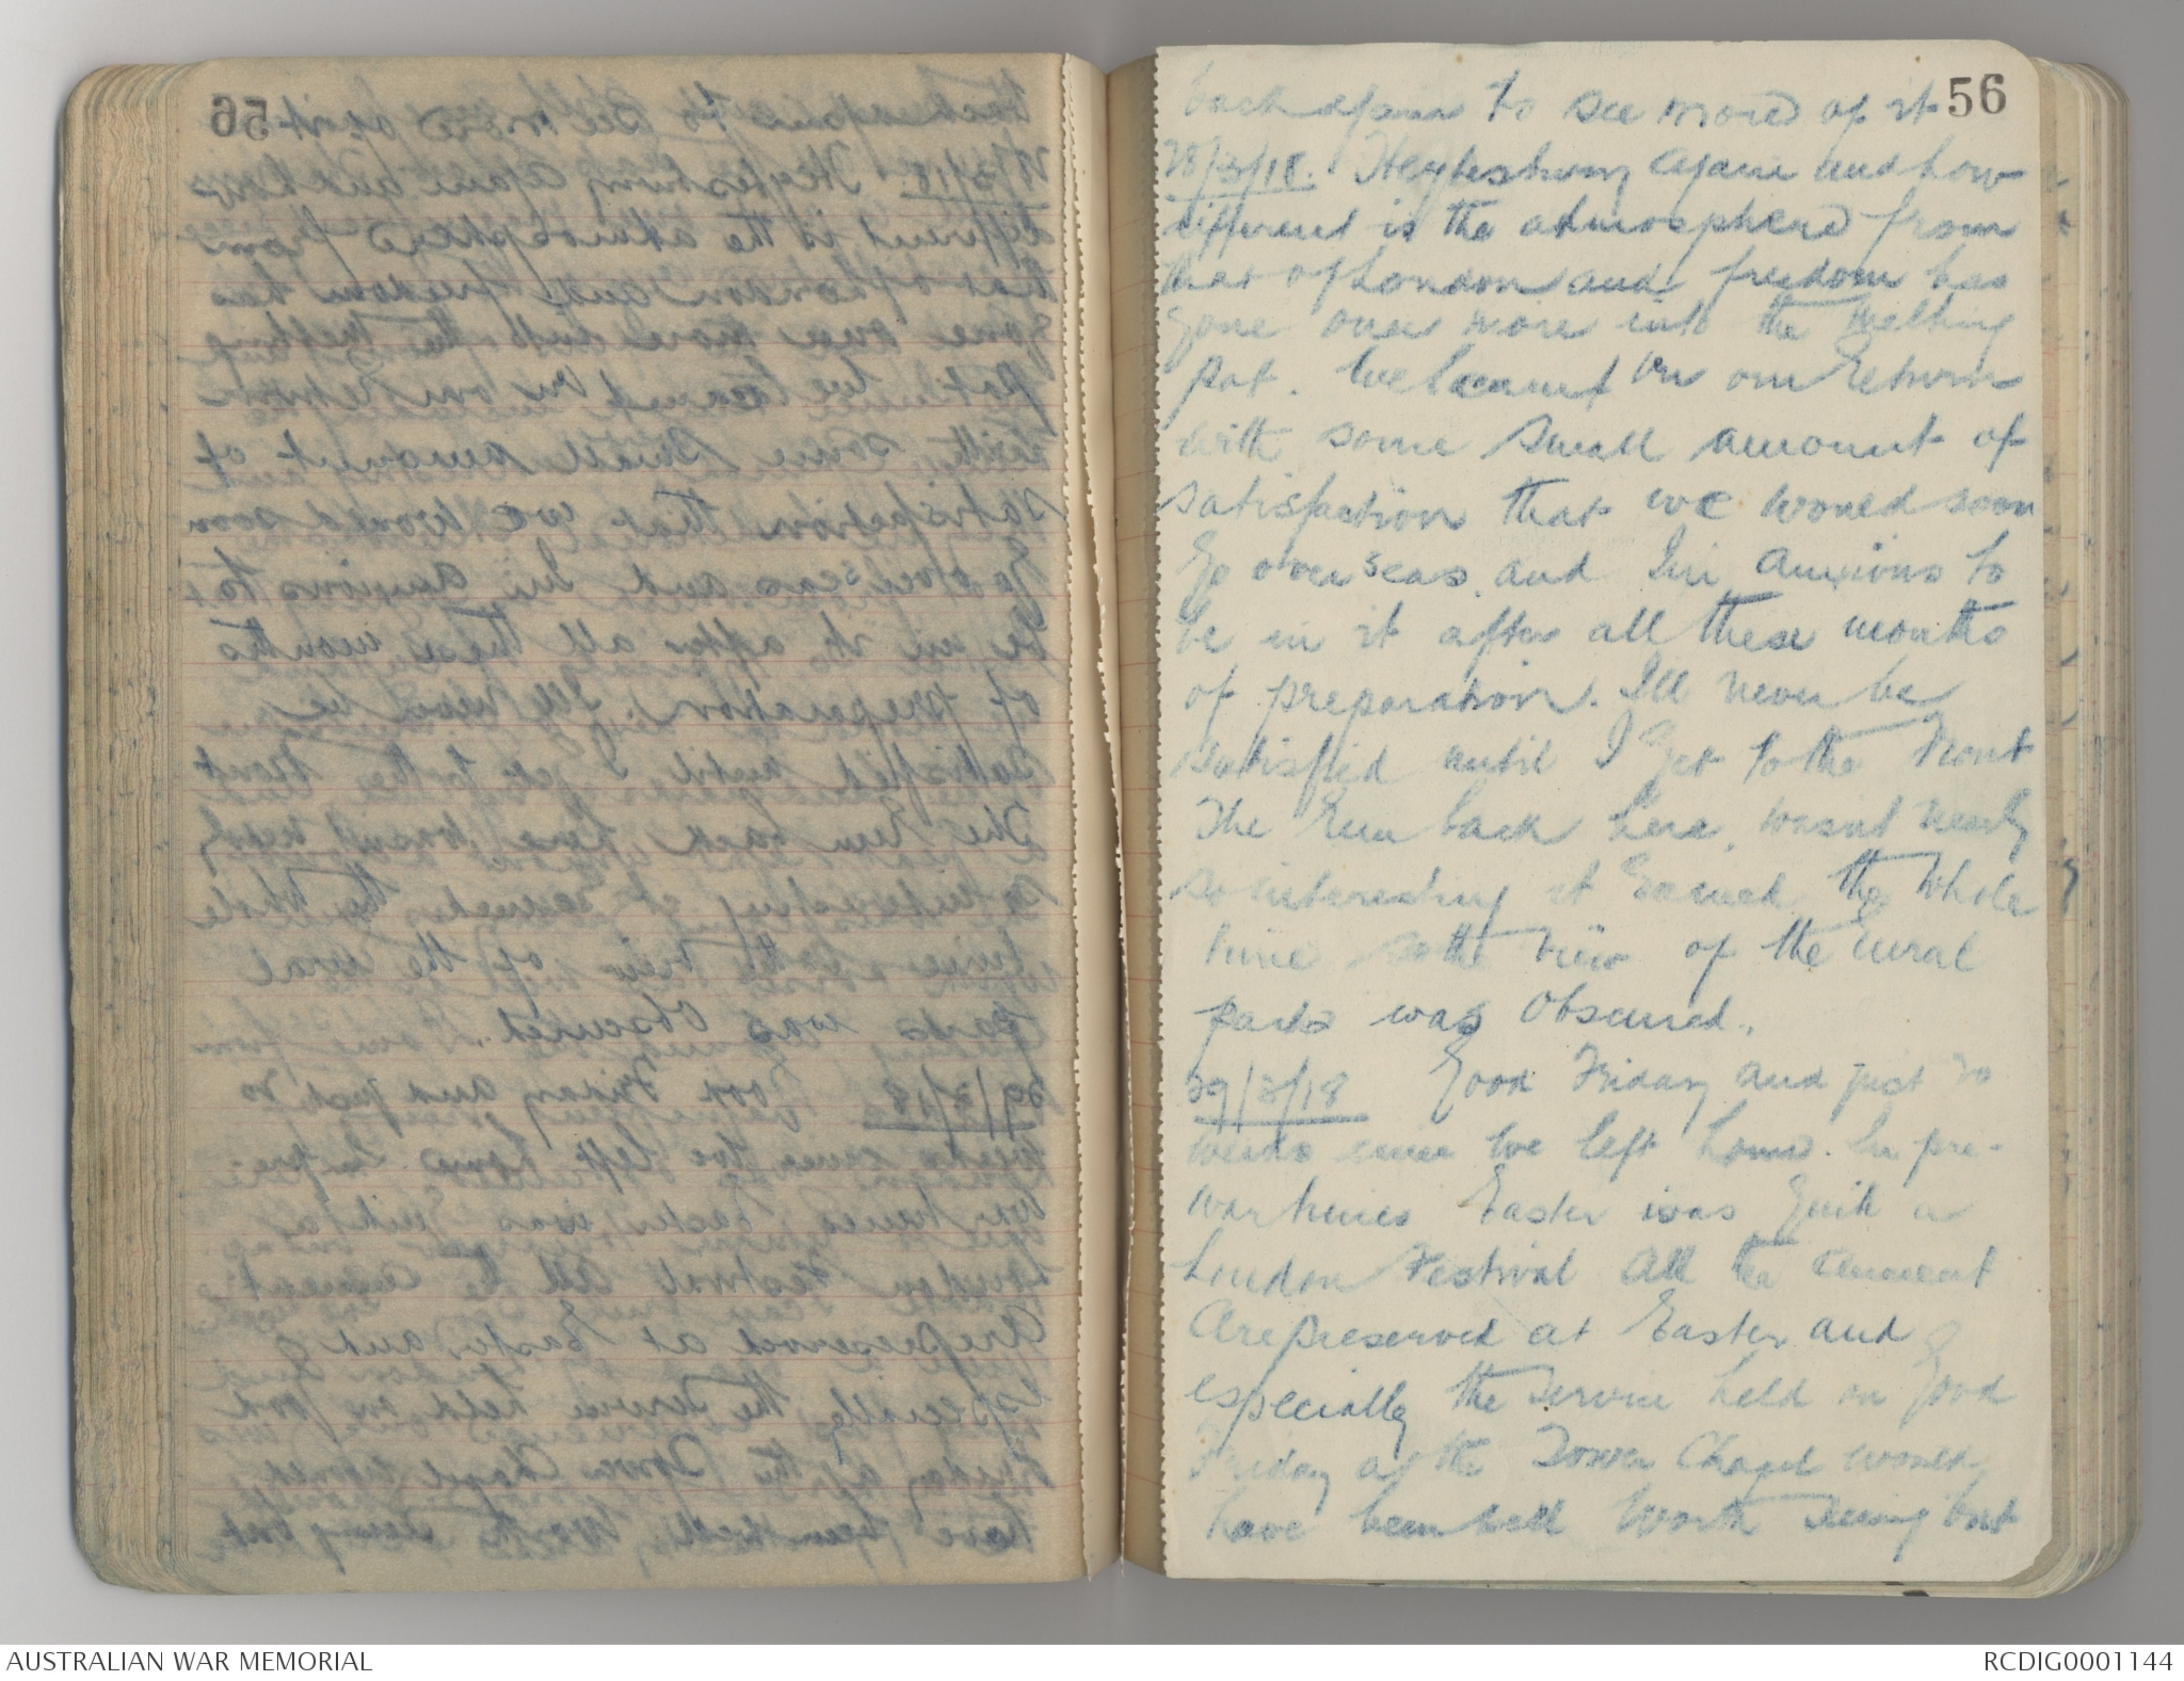 56
back again to see more of it
28/3/18. Heytesbury again and how
different is the atmosphere from
that of London and freedom has
gone once more into the melting
pot. We learnt on our return
with some small amount of
satisfaction that we would soon
go overseas and I'm anxious to
be in it after all these months
of preparation. Ill never be
satisfied until I get to the Front
The run back here, wasnt nearly
so interesting it rained the whole
time so the view of the rural
parts was obscured.
29/3/18 Good Friday and just 20
weeks since we left home. In pre-
war times Easter was quite a
London Festival All the
are preserved at Easter and
especially the service held on Good
Friday at the Tower Chapel would
have been well worth seeing but
AUSTRALIAN WAR MEMORIAL
RCDIG0001144